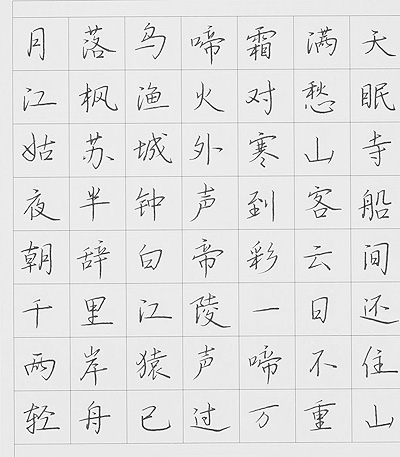 月落乌啼霜满天
江枫渔火对愁眠
姑苏城外寒山寺
夜半钟声到客船
朝辞白帝彩云间
千里江陵一日还
两岸猿声啼不住
轻舟已过万重山